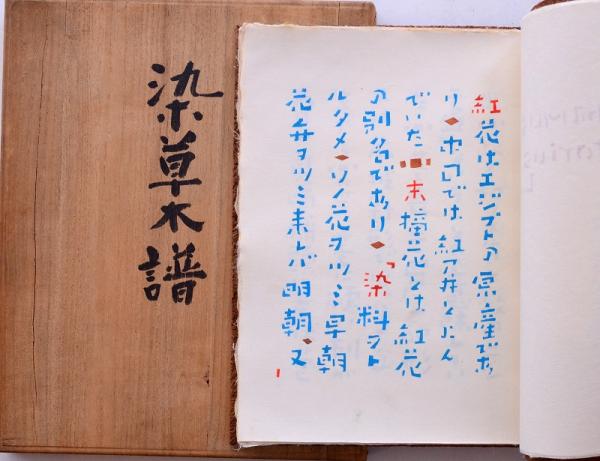 染草木譜
紅花はエジプトの原産であ
り◆中口では紅アヰとよん
でいた 末摘花とは紅花
の別名であり◆「染料ヲト
ルタメ◆ソノ花ヲツミ早朝
花弁ヲツミ来レバ明朝、又
torius
L